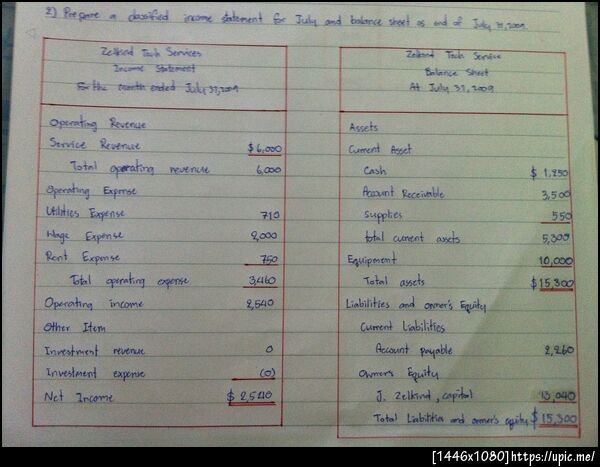 2) Prepare a classified income statement for July and balance sheet as end of July 31, 2009.
Zelkind Tech Services
Income Statement
For the month ended July 31, 2009
Operating Revenue
Service Revenue $ 6,000
Total operating revenue 6,000
Operating Expense
Utilities Expense 710
Wage Expense 2,000
Rent Expense 750
Total operating expense 3,460
Operating income 2,540
Other Item
Investment revenue 0
Investment expense (0)
Net Income $ 2,540
Zelkind Tech Service
Balance Sheet
At July 31, 2009
Assets
Current Asset
Cash $ 1,250
Account Receivable 3,500
Supplies 550
total current assets 5,300
Equipment 10,000
Total assets $ 15,300
Liabilities and owner's Equity
Current Liabilities
Account payable 2,260
Owner's Equity
J. Zelkind, capital 13,040
Total Liabilities and owner's equity $ 15,300
[1446x1080]https://upic.me/